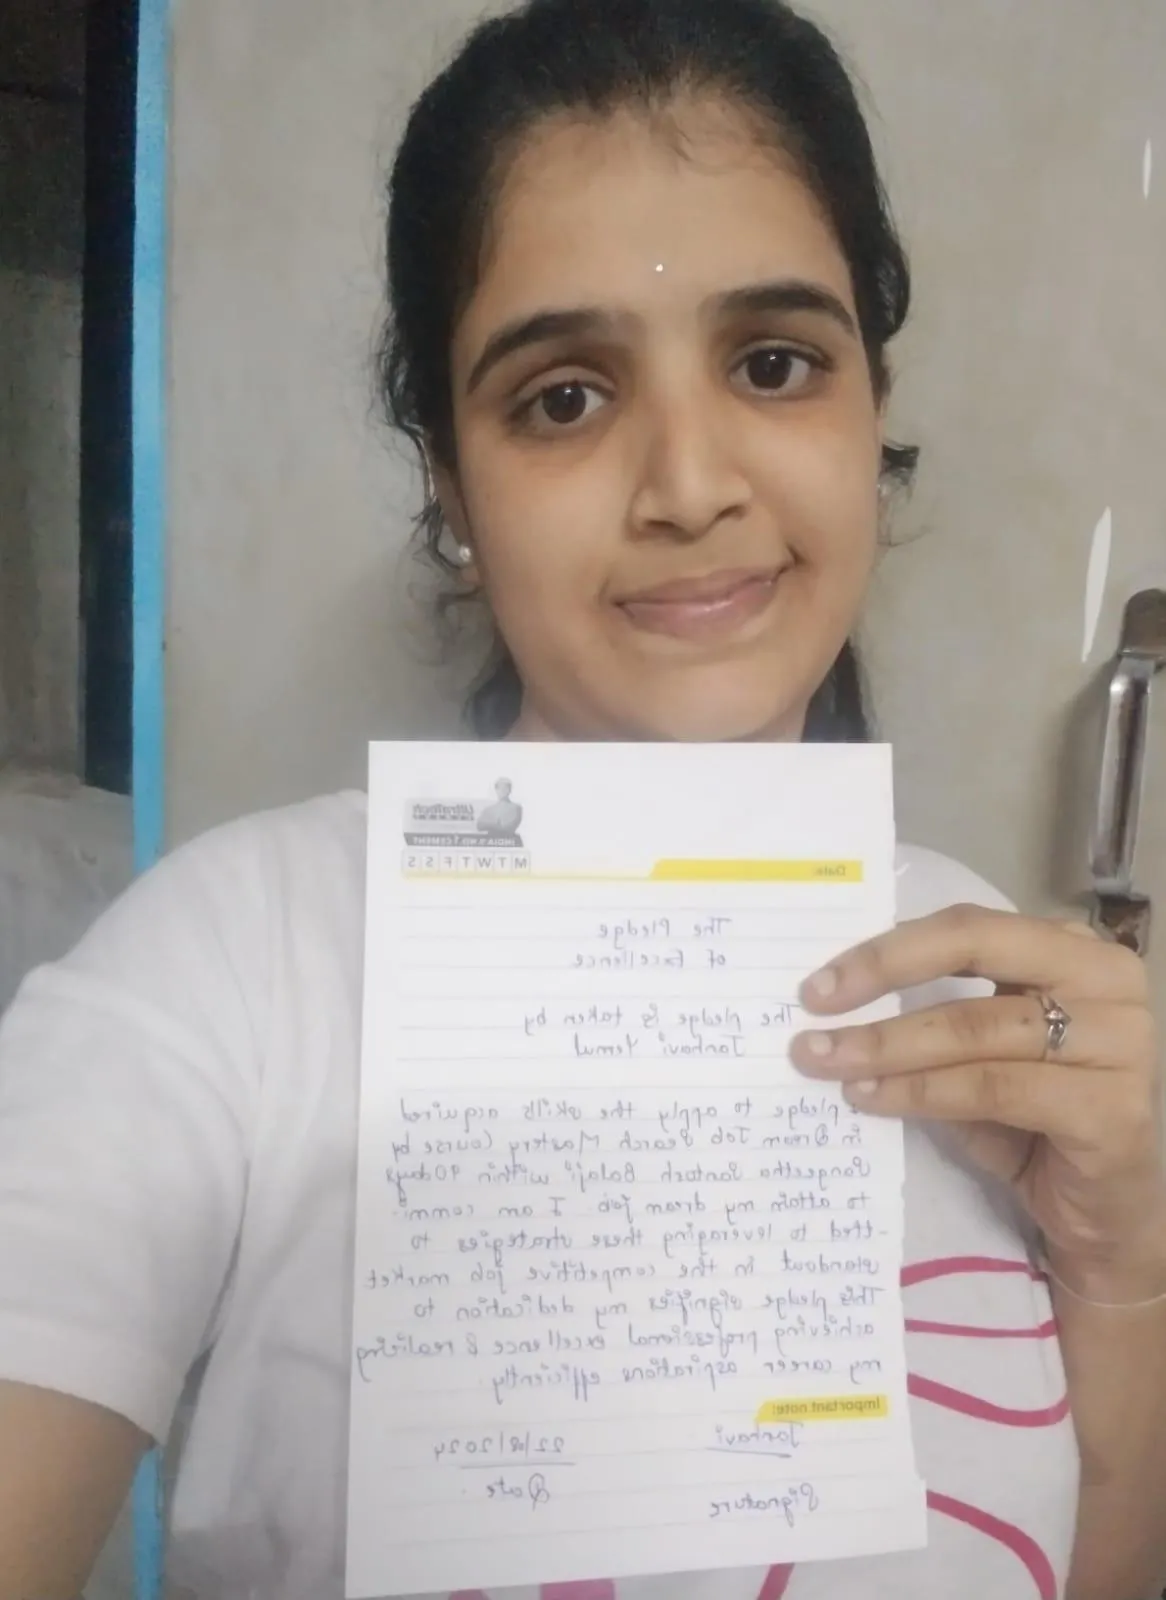 UltraTech
CEMENT
INDIA'S NO.1 CEMENT
M T W T F S S
Date:
The Pledge
of Excellence
The pledge is taken by
Janhavi Yemul
I pledge to apply the skills acquired
in Dream Job Search Mastery Course by
Sangeetha Santosh Balaji within 90days
to attain my dream job. I am commi-
-tted to leveraging these strategies to
standout in the competitive job market
This pledge signifies my dedication to
achieving professional excellence & realiting
my career aspirations efficiently.
Important note:
Janhavi 22/8/2024
Signature Date.